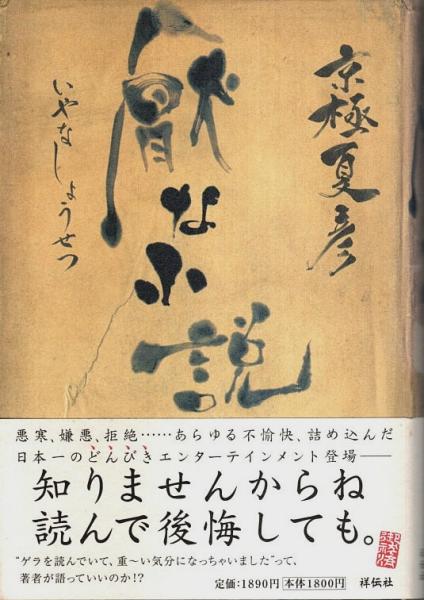 京極夏彦
厭な小説
いやなしょうせつ
悪寒、嫌悪、拒絶……あらゆる不愉快、詰め込んだ
日本一のどんびきエンターテインメント登場――
知りませんからね
読んで後悔しても。
“ゲラを読んでいて、重〜い気分になっちゃいました”って、
著者が語っていいのか!?
定価：1890円 本体1800円 祥伝社